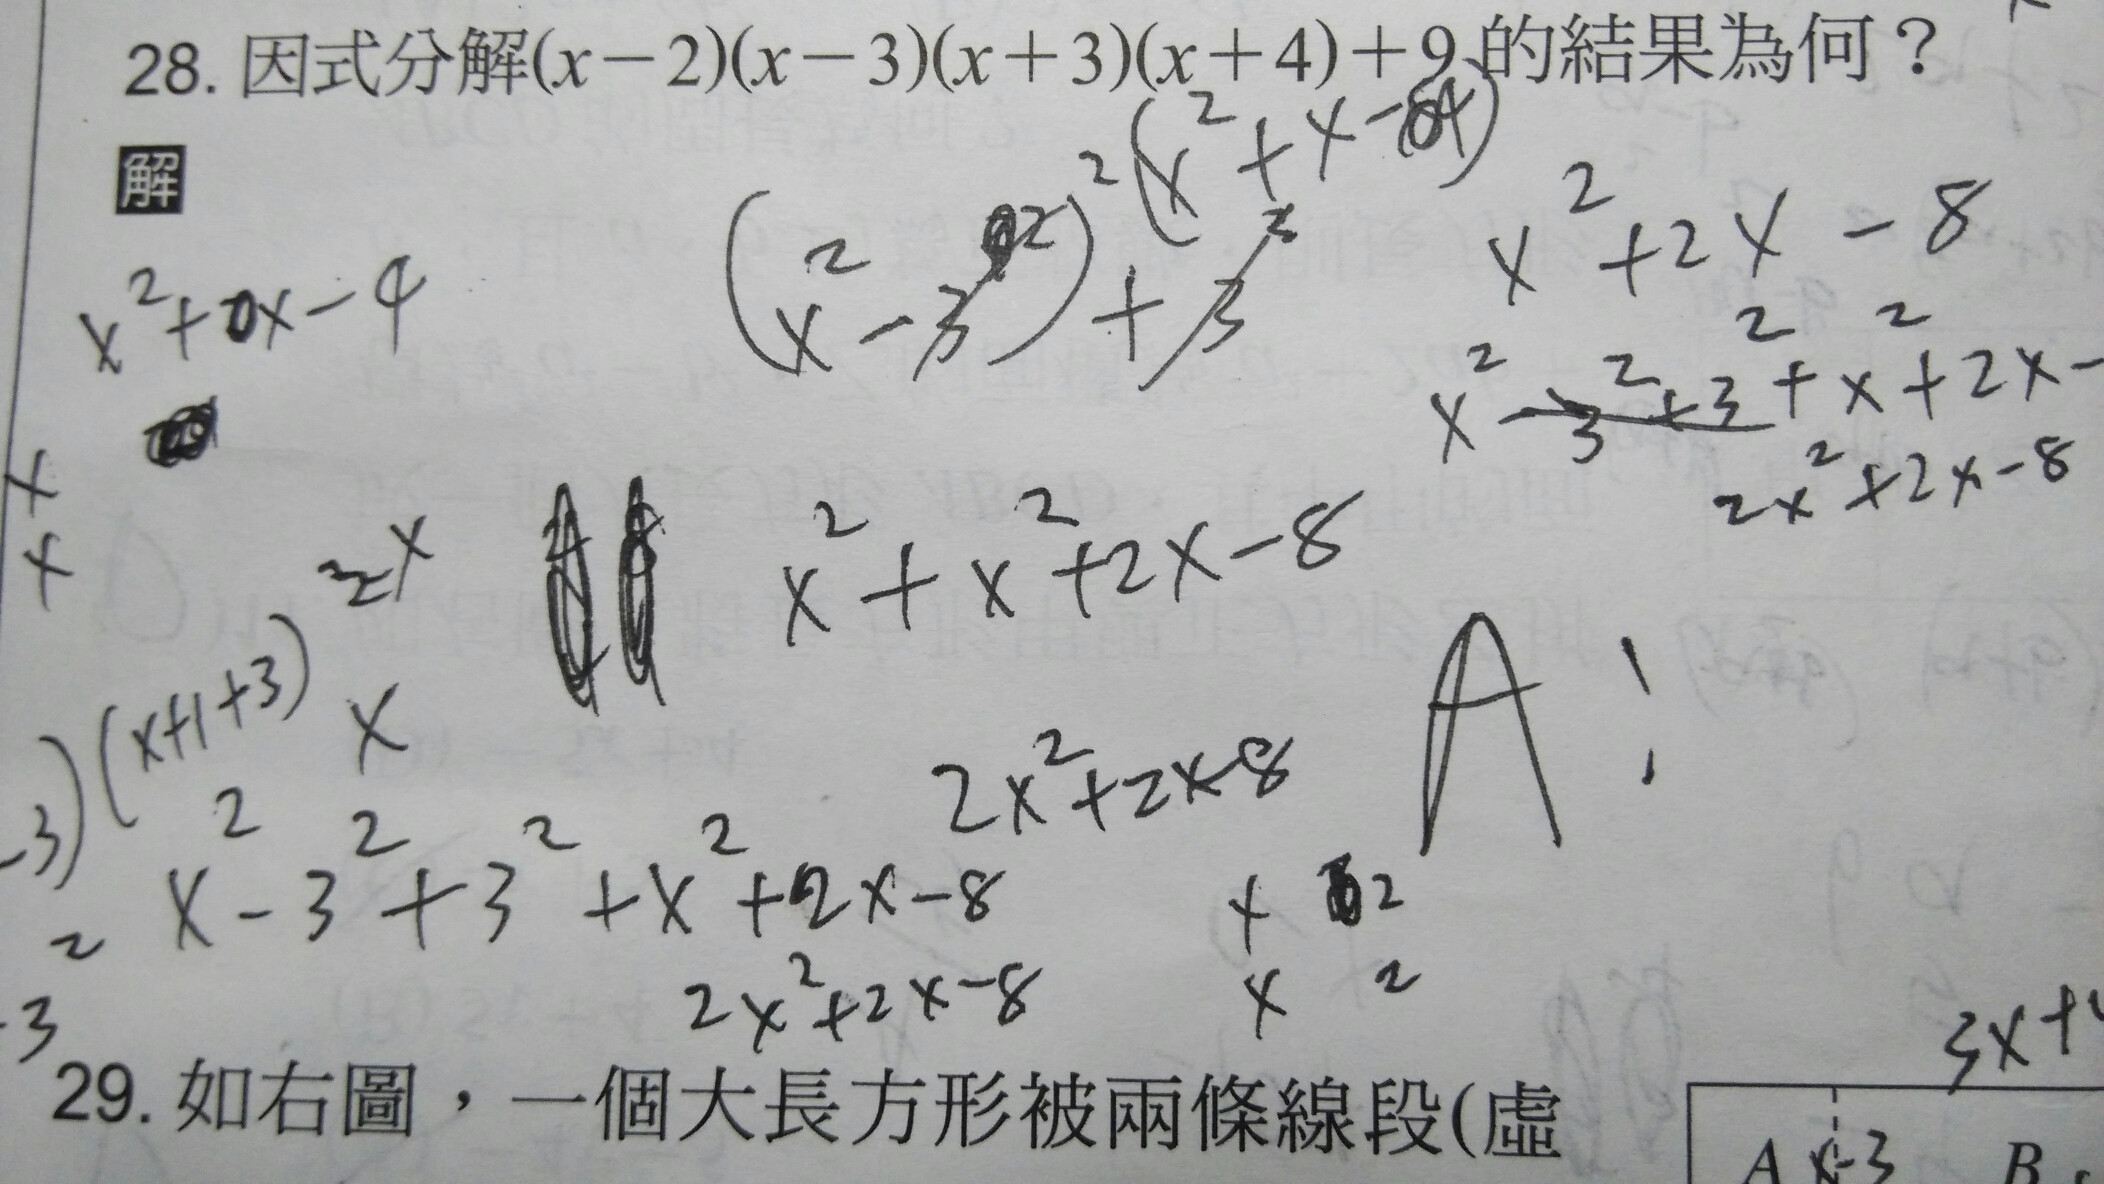 28. 因式分解(x－2)(x－3)(x＋3)(x＋4)＋9的結果為何？
(x²+x-
解
(x²-3²)²+3²
x²+2x-8
x²+0x-4
x²-3²+3²+x²+2x-
2x²+2x-8
x
x
2x
x²+x²+2x-8
-3)(x+1+3)
x
A!
2x²+2x-8
x²-3²+3²+x²+2x-8
x 2
2
2x²+2x-8
x 2
-3
3x+
29. 如右圖，一個大長方形被兩條線段(虛
A x-3 B